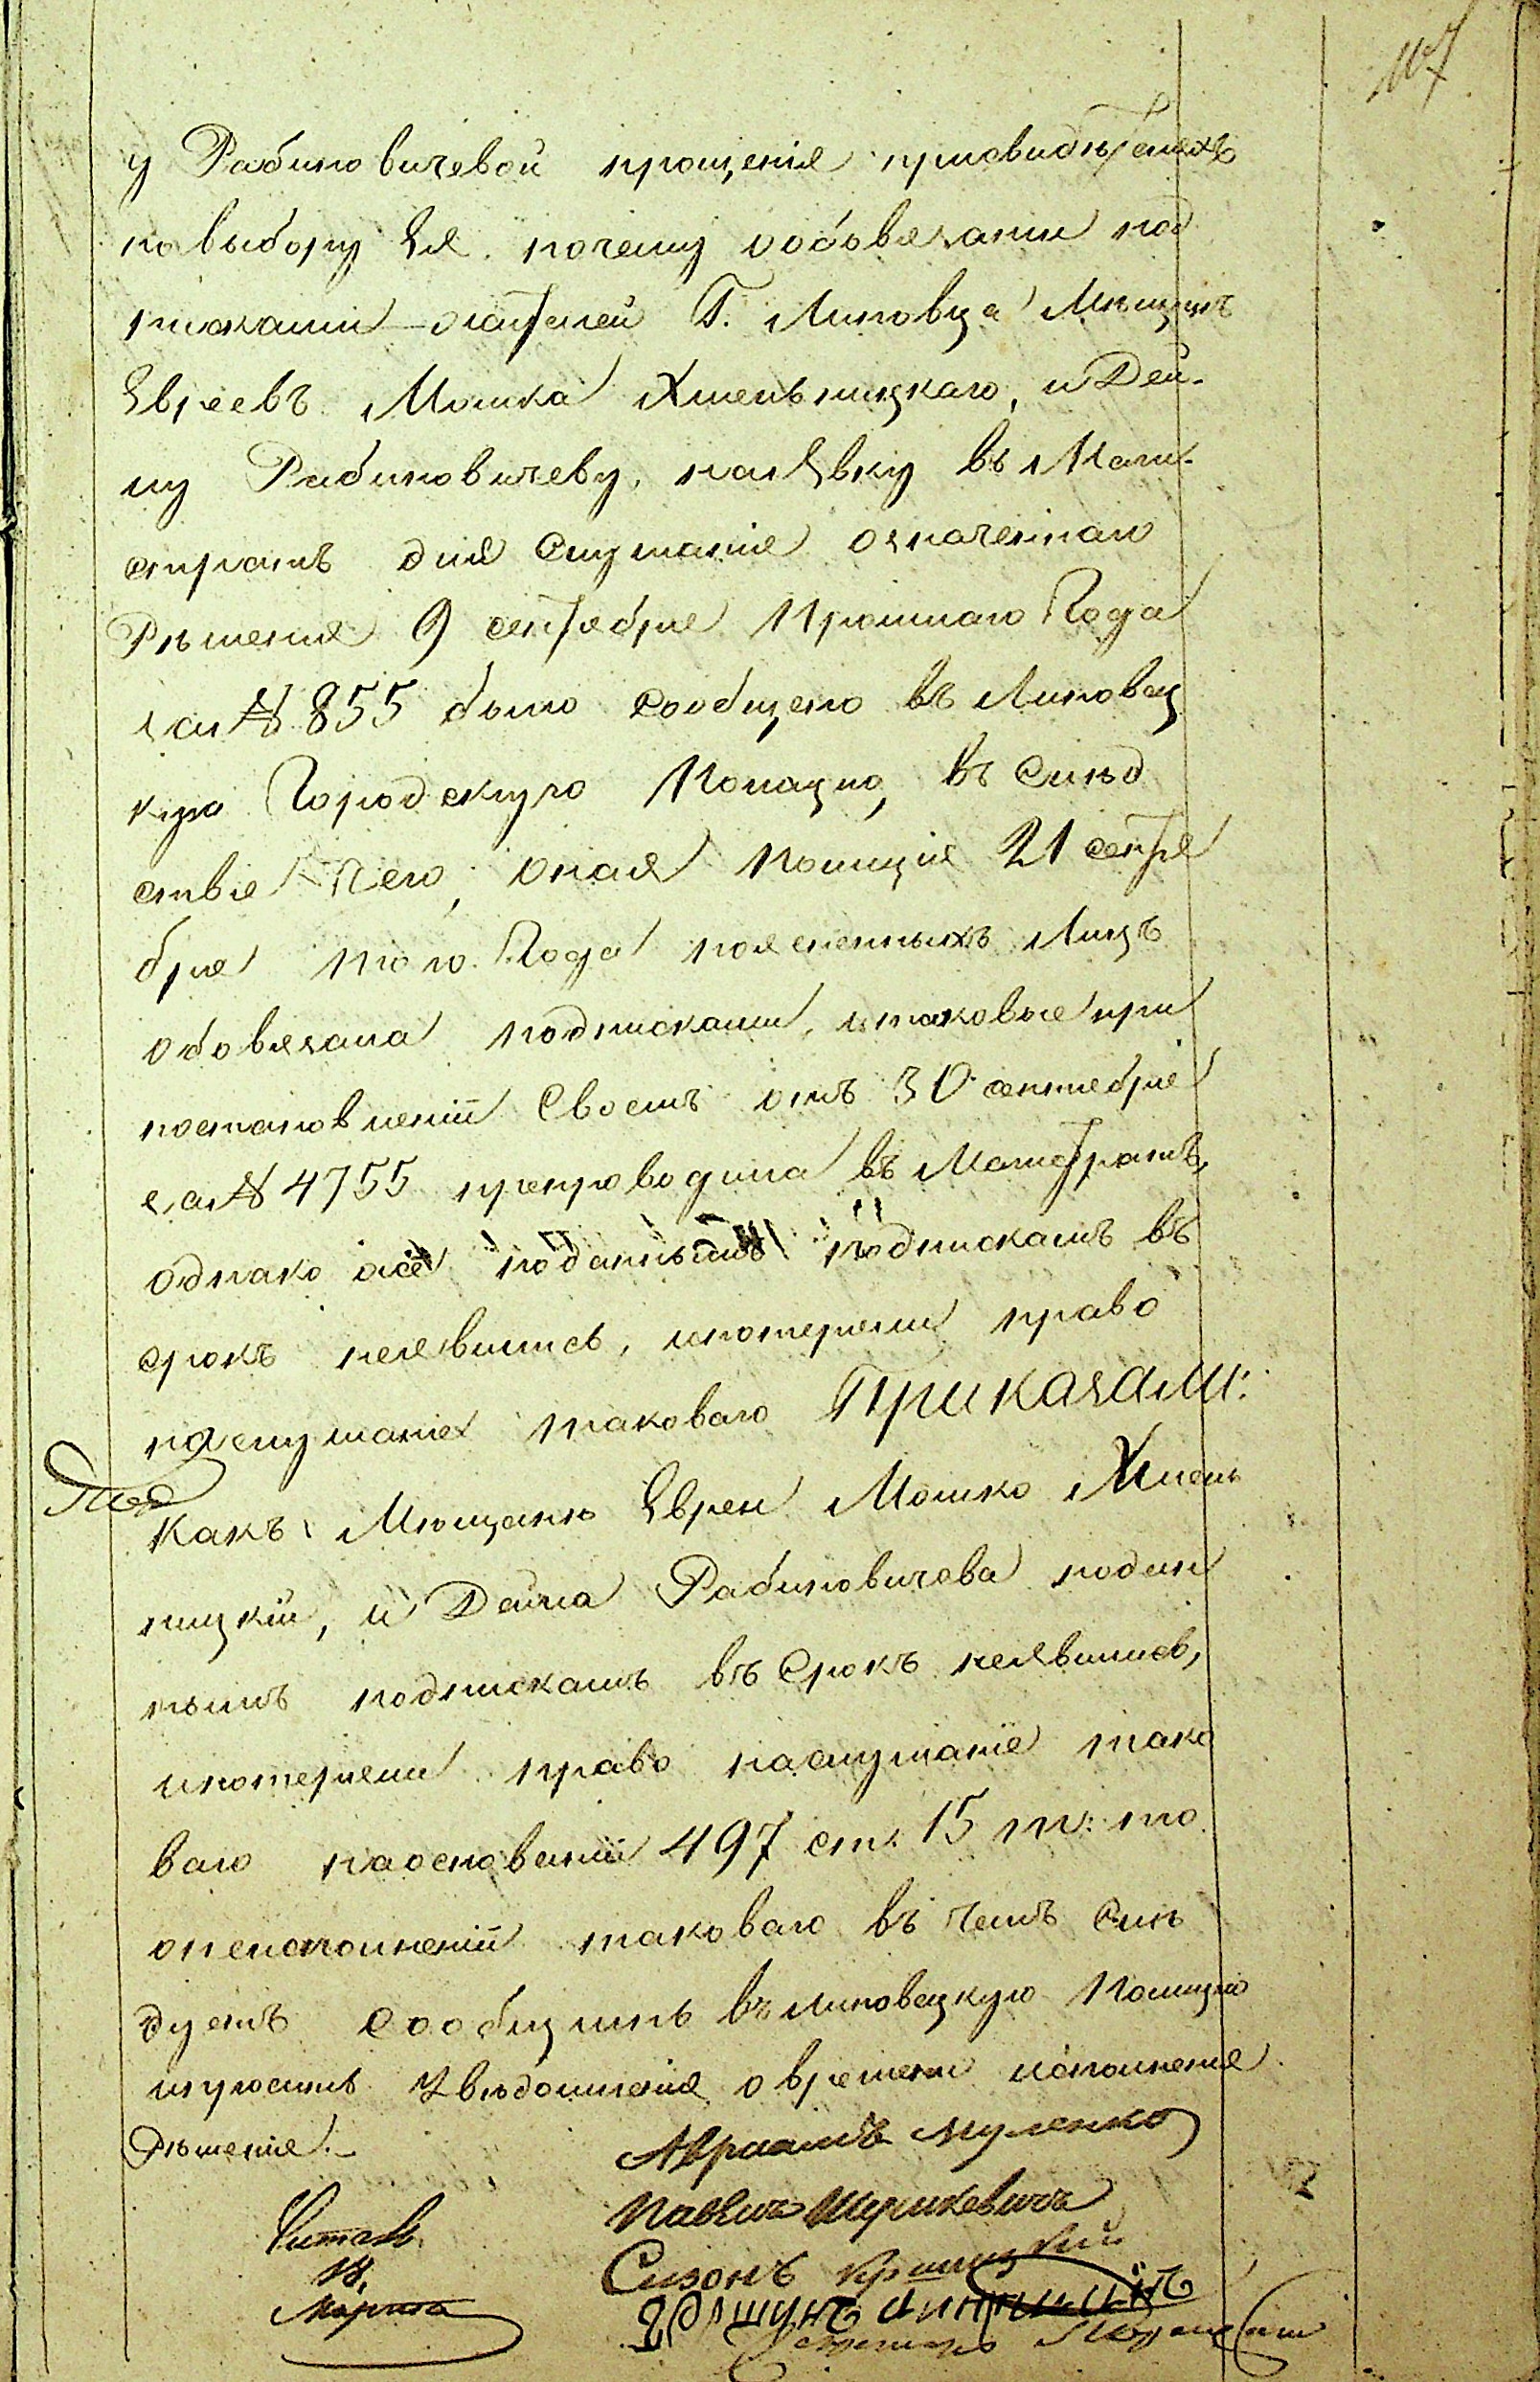 107
у Рабиновичевой прощенія присвидѣтеляхъ
по выбору Ея. почему обобвязаніи под
писками читателей Г. Липовца Мѣщанъ
Евреевъ Мошка Хмельницкаго, и Дей-
лу Рабиновичеву, наявку въ Маги-
стратъ для Слушанія означеннаго
Рѣшенія 9 сентября Прошлаго Года
за № 855 было сообщено въ Липовец
кую Городскую Полицію, въ Слѣд
ствіе чего, оная Полиція 21 сентя
бря того Года поясненныхъ Лицъ
обовязала подписками, итаковые при
постановленіи Своемъ отъ 30 сентября
за № 4755 препроводила въ Магистратъ,
однако же поданнымъ подпискамъ въ
срокъ неявились, ипотеряли право
наслушаніе таковаго Приказали:
Какъ Мѣщане Евреи Мошко Хмель
ницкій, и Дейла Рабиновичева подан
нымъ подпискамъ въ Срокъ неявились,
ипотеряли право наслушаніе тако
ваго наоснованіи 497 ст. 15 т: то
оисполненіи таковаго въ чемъ Слѣ
дуетъ Сообщить въ Липовецкую Полицію
ипросить Увѣдомленія о времени исполненія
Рѣшенія.
Авраамъ Муленко
Читалъ
Павелъ Шуркевичъ
18,
Сизонъ
Марта
Гершунъ
Секретарь